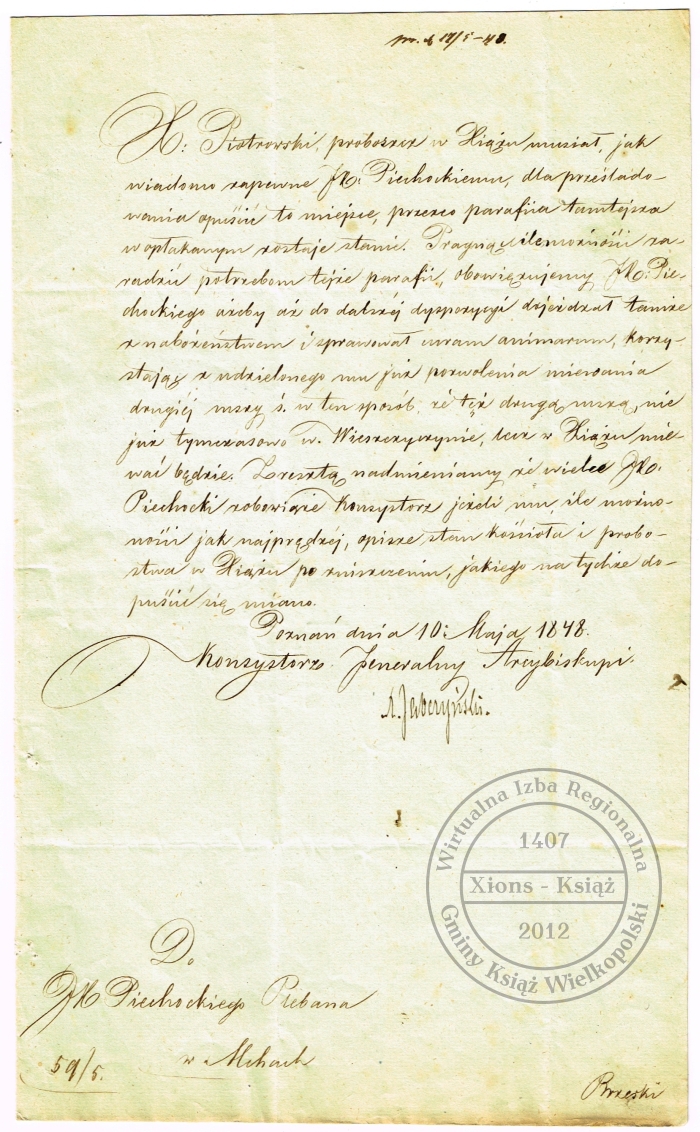 17/5-48.
X: Piotrowski, proboszcz w Xiążu musiał, jak
wiadomo zapewne JX: Piechockiemu, dla prześlado-
wania opuścić to miejsce, przezco parafiia tamtejsza
w opłakanym zostaje stanie. Pragnąc ile możności za-
radzić potrzebom tejże parafii, obowięzujemy JX: Pie-
chockiego ażeby aż do dalszéj dyspozycyi dojeżdżał tamże
z nabożeństwem i sprawował curam animarum, korzy-
stając z udzielonego mu już pozwolenia miewania
drugiéj mszy ś. w ten sposób, że też drugą mszą, nie
już tymczasowo w Wieszczyczynie, lecz w Xiążu mie-
wać będzie. Zresztą nadmieniamy że wielce JX:
Piechocki zobowiąże Konsystorz jeżeli mu, ile możno-
ności jak najprędzéj, opisze stan kościoła i probo-
stwa w Xiążu po zniszczeniu, jakiego na tychże do-
puścić się miano.
Poznań dnia 10: Maja 1848.
Konsystorz Jeneralny Arcybiskupi.
Jabczyński.
Do
JX Piechockiego Plebana
w Mchach
59/5.
Brzeski
Wirtualna Izba Regionalna
1407
Xions - Książ
2012
Gminy Książ Wielkopolski